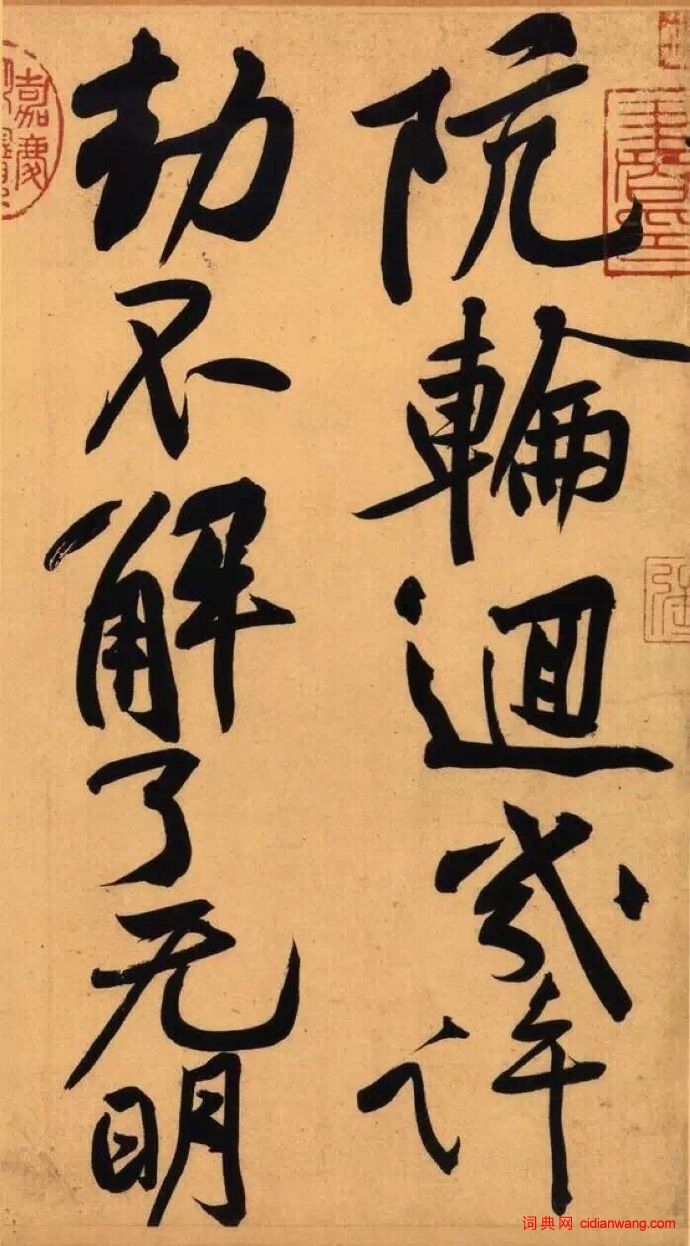 阬輪迴幾許
劫不解了无明
嘉慶
词典网 cidianwang.com